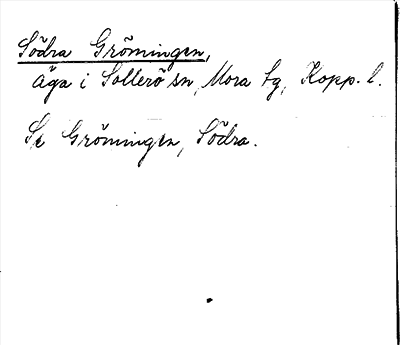 Södra Gröningen,
äga i Sollerö sn, Mora tg, Kopp. l.
Se Gröningen, Södra.